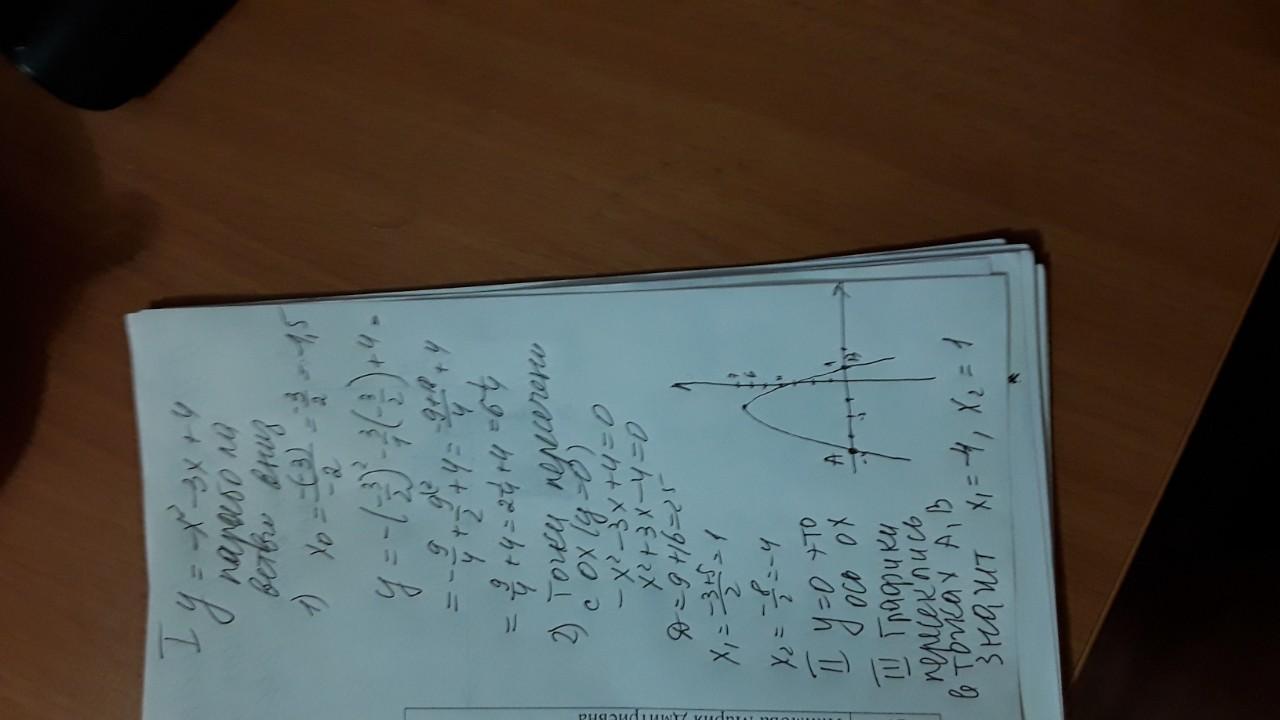 I y = -x² - 3x + 4
парабола
ветви вниз
1) x₀ = -(-3)/-2 = -3/2 = -1,5
y = -(-3/2)² - 3/1(-3/2) + 4 =
= -9/4 + 9/2 + 4 = 4
= 9/4 + 4 = 2 1/4 + 4 = 6 1/4
2) Точки
с ox (y=0)
-x² - 3x + 4 = 0
x² + 3x - 4 = 0
D = 9 + 16 = 25
x₁ = -3+5/2 = 1
x₂ = -8/2 = -4
II y = 0 это
ось ох
III Графики
пересеклись
в точках A, B
значит x₁ = -4, x₂ = 1
A
B
Мария Дмитриевна